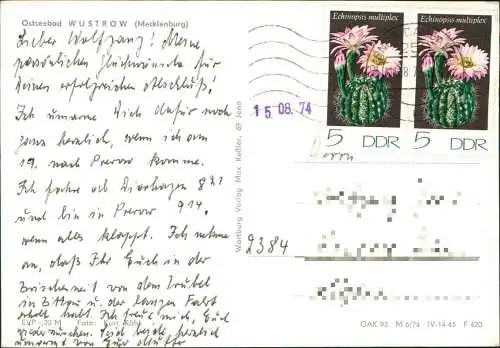 Ostseebad WUSTROW (Mecklenburg)
Lieber Wolfgang! Meine
persönlichen Glückwünsche für
Deinen erfolgreichen Abschluß!
Ich umarme Dich dafür noch
ganz herzlich, wenn ich am
19. nach Prerow komme.
Ich fahre ab Dierhagen 8
und bin in Prerow 9 14,
wenn alles klappt. Ich nehme
an, daß Ihr Euch in der
Zwischenzeit von dem Trubel
in u. der langen Fahrt
erholt habt. Ich freue mich, Euch
wiederzusehen. Seid beide herzlich
umarmt von Eurer Mutter
EVP -,20 M Foto: Kurt Röhl
Wartburg Verlag Max Keßler, 69 Jena
15.08.74
Echinopsis multiplex
5 DDR
Echinopsis multiplex
5 DDR
Herrn
2384
GAK 93 M 6/74 IV-14-45 F 420